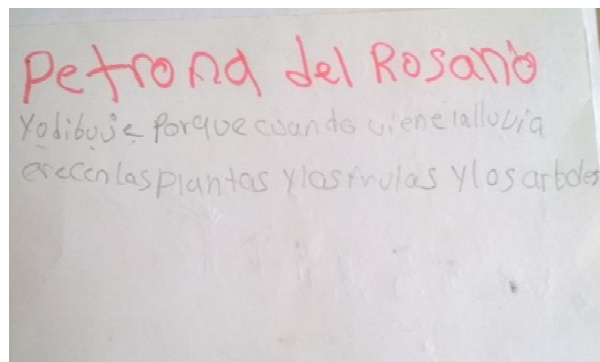 Petrona del Rosario
Yo dibuje porque cuando viene la lluvia
crecen las plantas y las frutas y los arboles